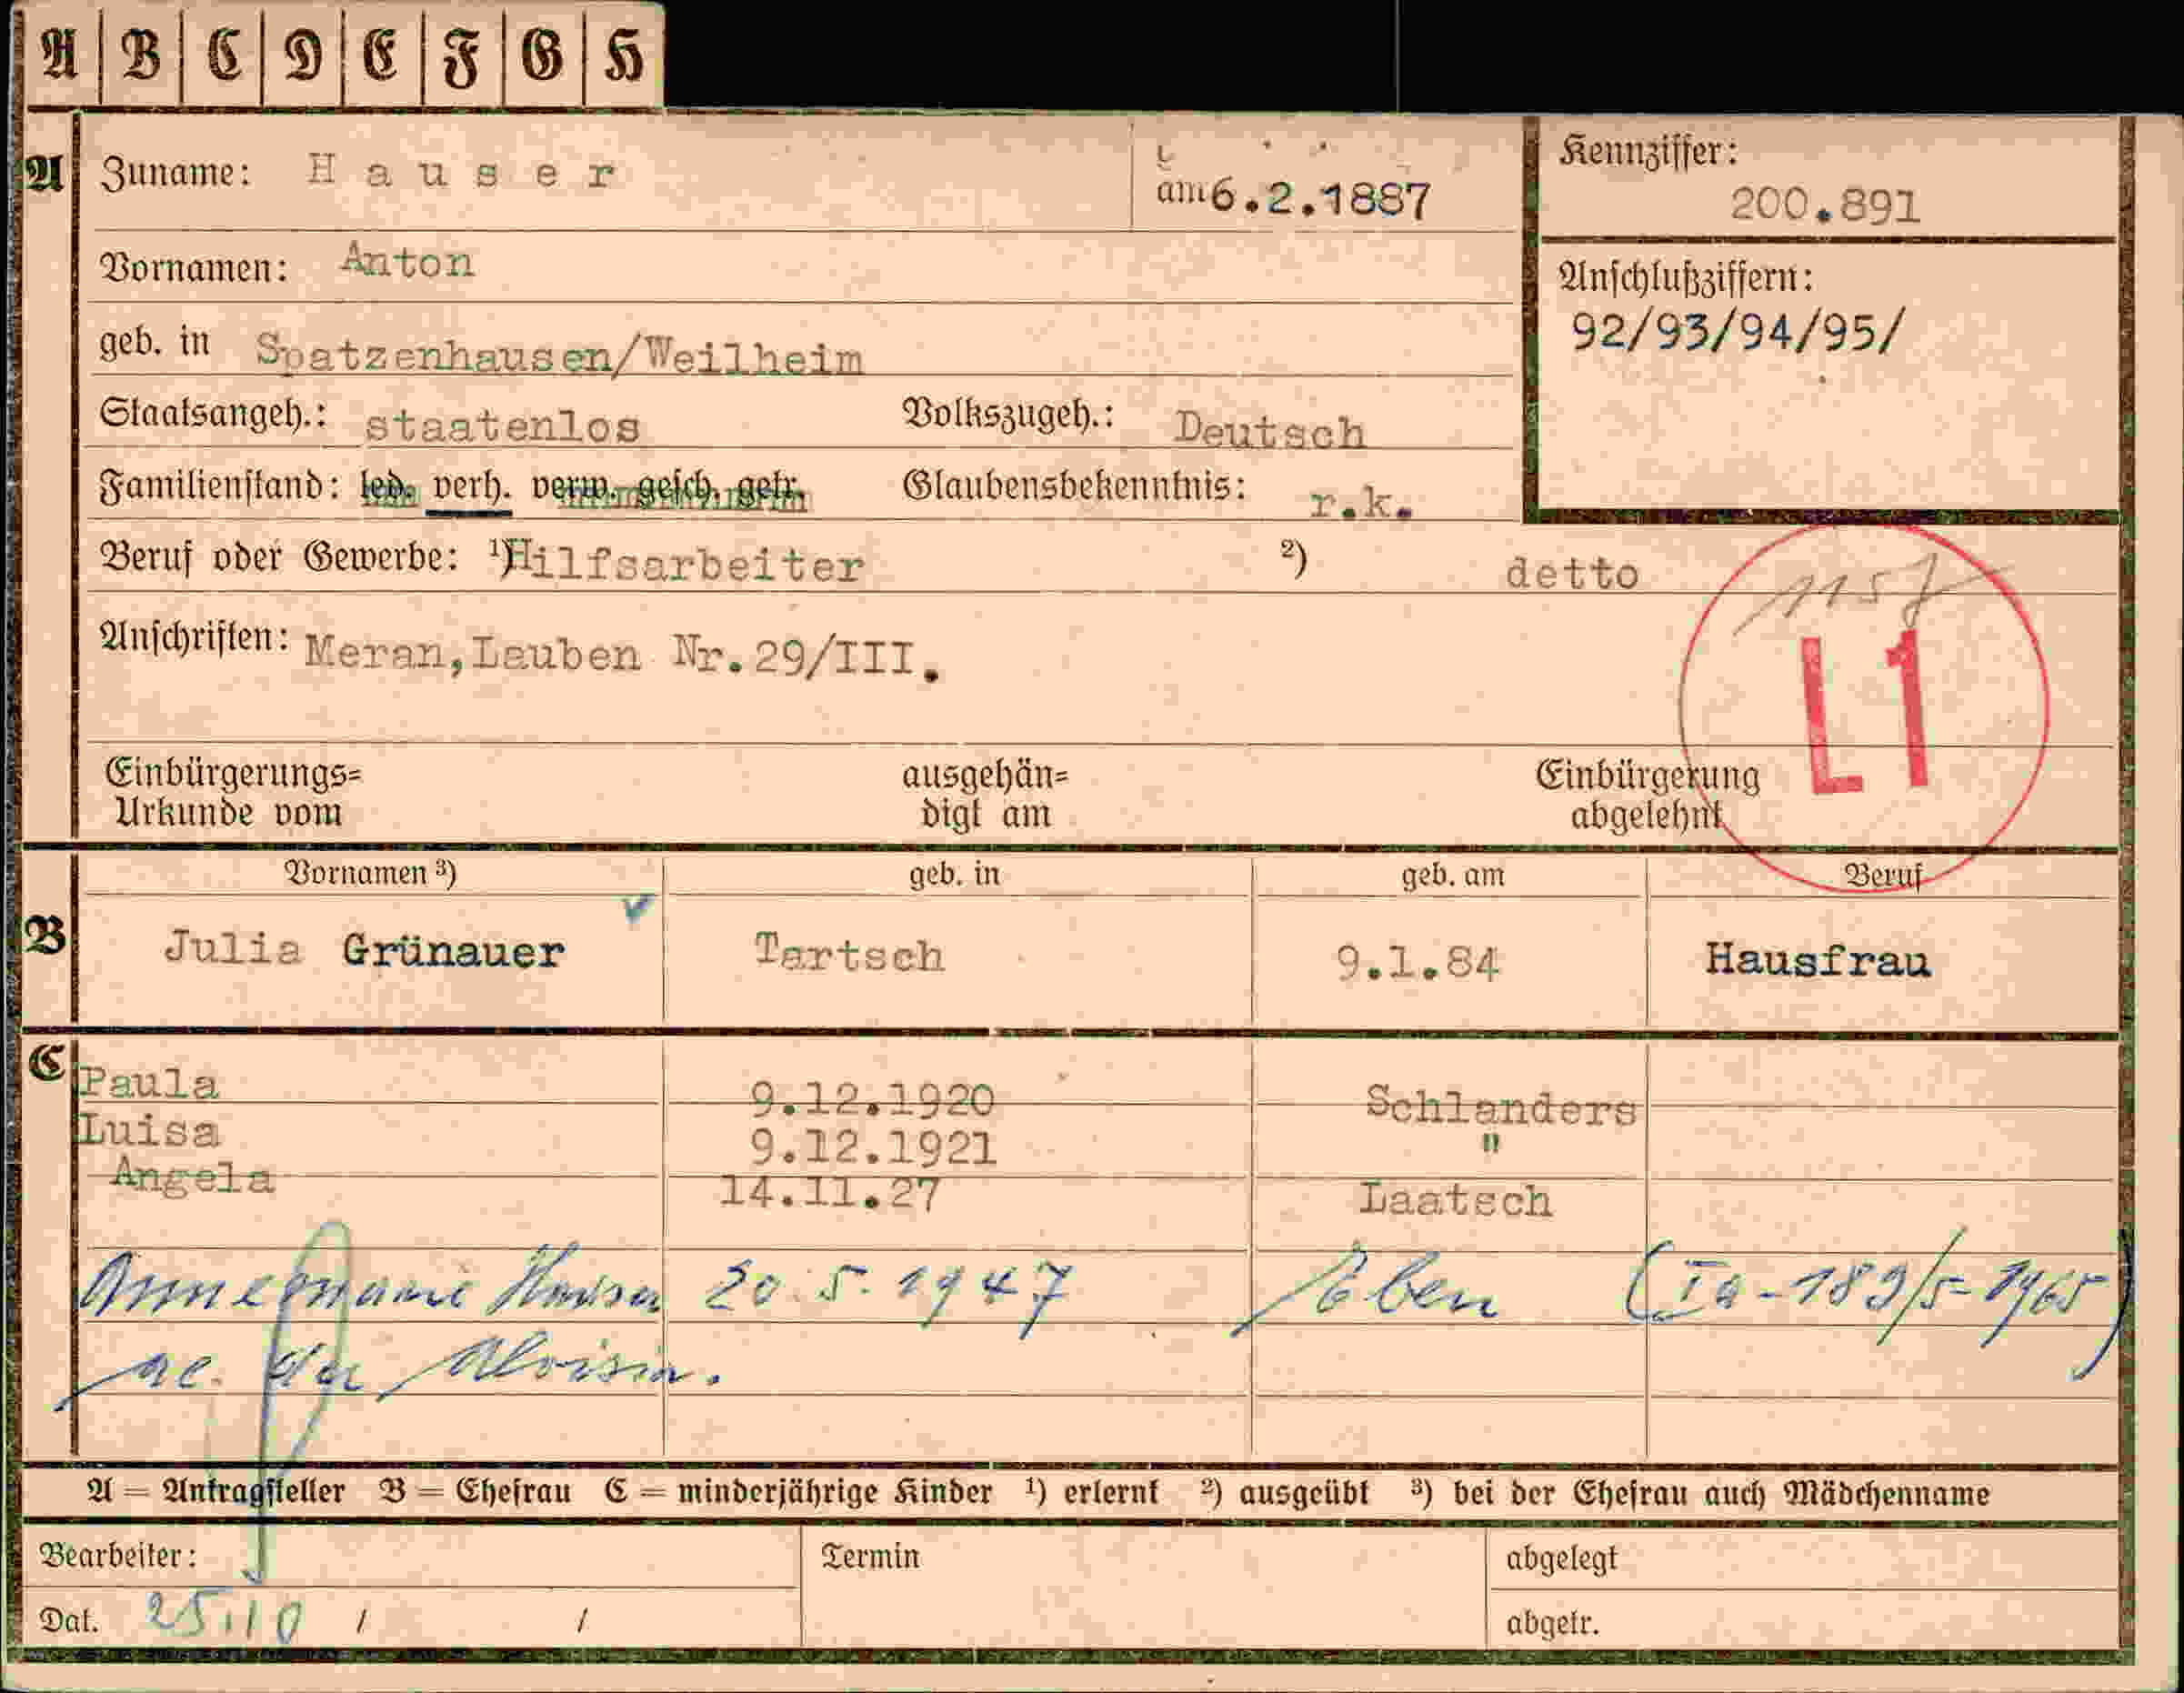 A B C D E F G H
A Zuname: Hauser am 6.2.1887 Kennziffer:
200.891
Vornamen: Anton
Anschlußziffern:
92/93/94/95/
geb. in Spatzenhausen/Weilheim
Staatsangeh.: staatenlos Volkszugeh.: Deutsch
Familienstand: led. verh. verw. gesch. getr. Glaubensbekenntnis: r.k.
Beruf oder Gewerbe: 1) Hilfsarbeiter 2) detto
1157
Anschriften: Meran, Lauben Nr. 29/III.
L1
Einbürgerungs= ausgehän= Einbürgerung
Urkunde vom digt am abgelehnt
Vornamen 3) geb. in geb. am Beruf
B Julia Grünauer Tartsch 9.1.84 Hausfrau
C Paula 9.12.1920 Schlanders
Luisa 9.12.1921 "
Angela 14.11.27 Laatsch
Annemarie Hauser 20.5.1947 Eben (Ia-189/5-1965)
ae. der Aloisia.
A = Antragsteller B = Ehefrau C = minderjährige Kinder 1) erlernt 2) ausgeübt 3) bei der Ehefrau auch Mädchenname
Bearbeiter: Termin abgelegt
Dat. 25.10 / / abgetr.